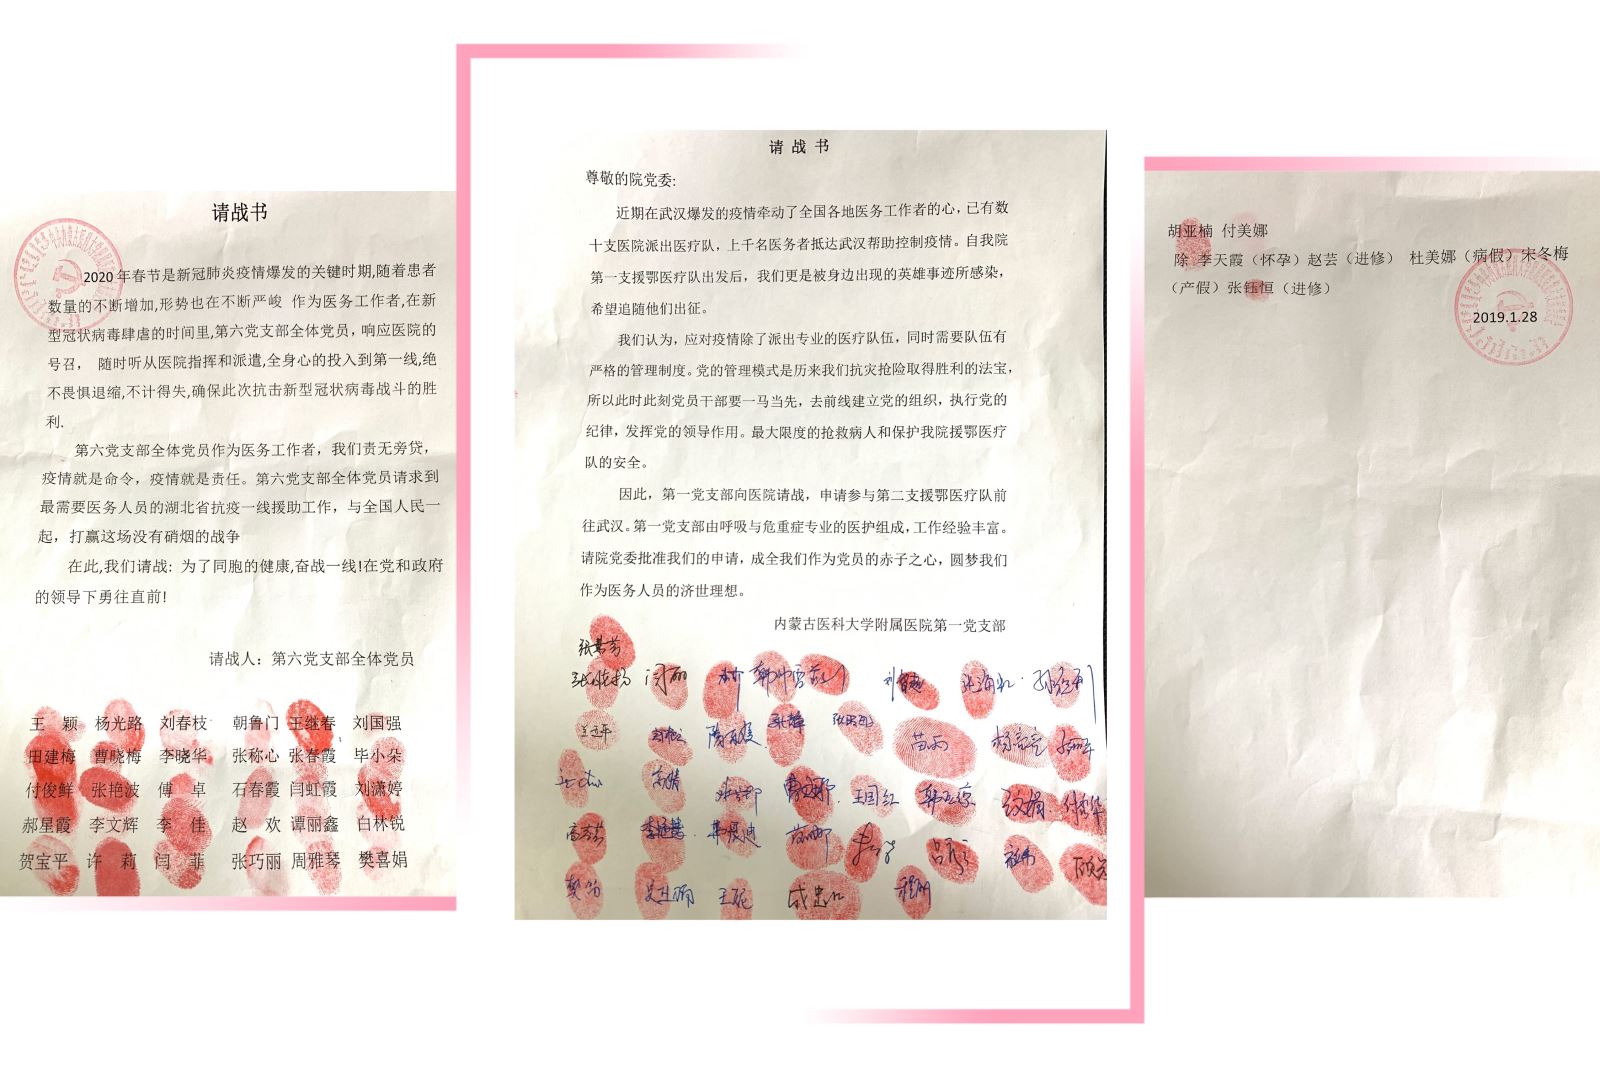 请战书
2020年春节是新冠肺炎疫情爆发的关键时期,随着患者
数量的不断增加,形势也在不断严峻 作为医务工作者,在新
型冠状病毒肆虐的时间里,第六党支部全体党员，响应医院的
号召， 随时听从医院指挥和派遣,全身心的投入到第一线,绝
不畏惧退缩,不计得失,确保此次抗击新型冠状病毒战斗的胜
利.
第六党支部全体党员作为医务工作者，我们责无旁贷，
疫情就是命令，疫情就是责任。第六党支部全体党员请求到
最需要医务人员的湖北省抗疫一线援助工作，与全国人民一
起，打赢这场没有硝烟的战争
在此,我们请战: 为了同胞的健康,奋战一线!在党和政府
的领导下勇往直前!
请战人：第六党支部全体党员
王 颖 杨光路 刘春枝 朝鲁门 王继春 刘国强
田建梅 曹晓梅 李晓华 张称心 张春霞 毕小朵
付俊鲜 张艳波 傅 卓 石春霞 闫虹霞 刘潇婷
郝星霞 李文辉 李 佳 赵 欢 谭丽鑫 白林锐
贺宝平 许 莉 闫 菲 张巧丽 周雅琴 樊喜娟
请 战 书
尊敬的院党委:
近期在武汉爆发的疫情牵动了全国各地医务工作者的心，已有数
十支医院派出医疗队，上千名医务者抵达武汉帮助控制疫情。自我院
第一支援鄂医疗队出发后，我们更是被身边出现的英雄事迹所感染，
希望追随他们出征。
我们认为，应对疫情除了派出专业的医疗队伍，同时需要队伍有
严格的管理制度。党的管理模式是历来我们抗灾抢险取得胜利的法宝，
所以此时此刻党员干部要一马当先，去前线建立党的组织，执行党的
纪律，发挥党的领导作用。最大限度的抢救病人和保护我院援鄂医疗
队的安全。
因此，第一党支部向医院请战，申请参与第二支援鄂医疗队前
往武汉。第一党支部由呼吸与危重症专业的医护组成，工作经验丰富。
请院党委批准我们的申请，成全我们作为党员的赤子之心，圆梦我们
作为医务人员的济世理想。
内蒙古医科大学附属医院第一党支部
闫丽
苗雨
王国红
胡亚楠 付美娜
除 李天霞（怀孕）赵芸（进修） 杜美娜（病假）宋冬梅
（产假）张钰恒（进修）
2019.1.28